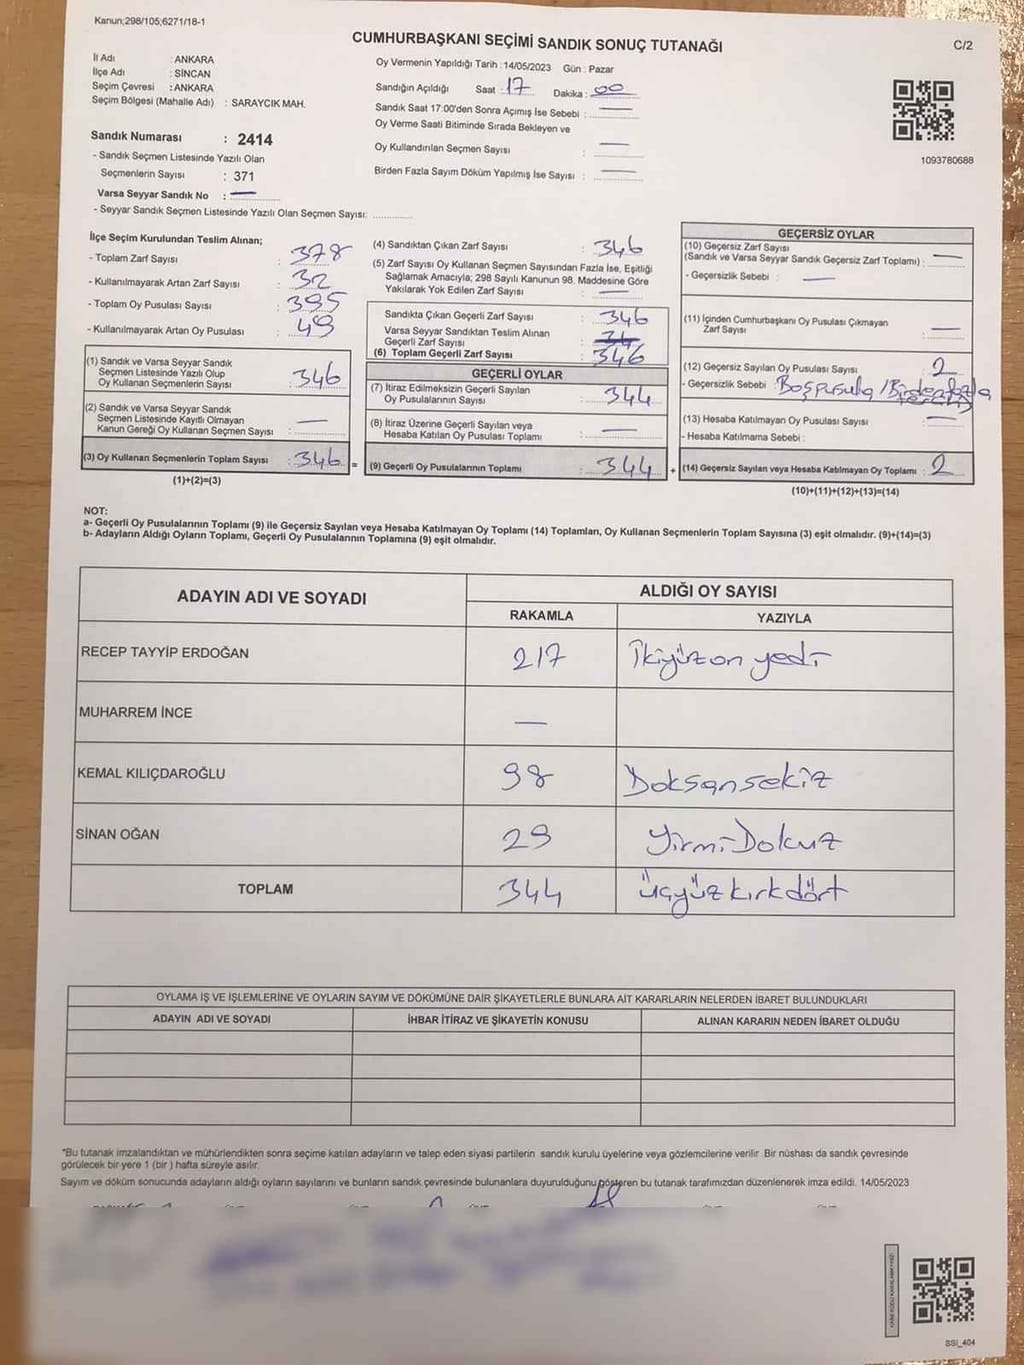 Kanun;298/105;6271/18-1
CUMHURBAŞKANI SEÇİMİ SANDIK SONUÇ TUTANAĞI
C/2
İl Adı : ANKARA
İlçe Adı : SİNCAN
Seçim Çevresi : ANKARA
Seçim Bölgesi (Mahalle Adı) : SARAYCIK MAH.
Sandık Numarası : 2414
- Sandık Seçmen Listesinde Yazılı Olan
Seçmenlerin Sayısı : 371
Varsa Seyyar Sandık No : —
- Seyyar Sandık Seçmen Listesinde Yazılı Olan Seçmen Sayısı: ............
Oy Vermenin Yapıldığı Tarih : 14/05/2023 Gün : Pazar
Sandığın Açıldığı Saat : 17 Dakika : 00
Sandık Saat 17:00'den Sonra Açımış İse Sebebi : —
Oy Verme Saati Bitiminde Sırada Bekleyen ve
Oy Kullandırılan Seçmen Sayısı : —
Birden Fazla Sayım Döküm Yapılmış İse Sayısı : —
1093780688
İlçe Seçim Kurulundan Teslim Alınan;
- Toplam Zarf Sayısı : 378
- Kullanılmayarak Artan Zarf Sayısı : 32
- Toplam Oy Pusulası Sayısı : 395
- Kullanılmayarak Artan Oy Pusulası : 49
(1) Sandık ve Varsa Seyyar Sandık
Seçmen Listesinde Yazılı Olup
Oy Kullanan Seçmenlerin Sayısı : 346
(2) Sandık ve Varsa Seyyar Sandık
Seçmen Listesinde Kayıtlı Olmayan
Kanun Gereği Oy Kullanan Seçmen Sayısı : —
(3) Oy Kullanan Seçmenlerin Toplam Sayısı : 346 =
(1)+(2)=(3)
(4) Sandıktan Çıkan Zarf Sayısı : 346
(5) Zarf Sayısı Oy Kullanan Seçmen Sayısından Fazla İse, Eşitliği
Sağlamak Amacıyla; 298 Sayılı Kanunun 98. Maddesine Göre
Yakılarak Yok Edilen Zarf Sayısı : —
Sandıkta Çıkan Geçerli Zarf Sayısı : 346
Varsa Seyyar Sandıktan Teslim Alınan
Geçerli Zarf Sayısı :
(6) Toplam Geçerli Zarf Sayısı : 346
GEÇERLİ OYLAR
(7) İtiraz Edilmeksizin Geçerli Sayılan
Oy Pusulalarının Sayısı : 344
(8) İtiraz Üzerine Geçerli Sayılan veya
Hesaba Katılan Oy Pusulası Toplamı : —
(9) Geçerli Oy Pusulalarının Toplamı : 344 +
GEÇERSİZ OYLAR
(10) Geçersiz Zarf Sayısı
(Sandık ve Varsa Seyyar Sandık Geçersiz Zarf Toplamı) : —
- Geçersizlik Sebebi : —
(11) İçinden Cumhurbaşkanı Oy Pusulası Çıkmayan
Zarf Sayısı : —
(12) Geçersiz Sayılan Oy Pusulası Sayısı : 2
- Geçersizlik Sebebi : Boş pusula / Birden fazla
(13) Hesaba Katılmayan Oy Pusulası Sayısı : —
- Hesaba Katılmama Sebebi :
(14) Geçersiz Sayılan veya Hesaba Katılmayan Oy Toplamı : 2
(10)+(11)+(12)+(13)=(14)
NOT:
a- Geçerli Oy Pusulalarının Toplamı (9) ile Geçersiz Sayılan veya Hesaba Katılmayan Oy Toplamı (14) Toplamları, Oy Kullanan Seçmenlerin Toplam Sayısına (3) eşit olmalıdır. (9)+(14)=(3)
b- Adayların Aldığı Oyların Toplamı, Geçerli Oy Pusulalarının Toplamına (9) eşit olmalıdır.
ADAYIN ADI VE SOYADI
ALDIĞI OY SAYISI
RAKAMLA YAZIYLA
RECEP TAYYİP ERDOĞAN 217 İkiyüz on yedi
MUHARREM İNCE —
KEMAL KILIÇDAROĞLU 98 Doksansekiz
SİNAN OĞAN 29 Yirmi Dokuz
TOPLAM 344 üçyüz kırk dört
OYLAMA İŞ VE İŞLEMLERİNE VE OYLARIN SAYIM VE DÖKÜMÜNE DAİR ŞİKAYETLERLE BUNLARA AİT KARARLARIN NELERDEN İBARET BULUNDUKLARI
ADAYIN ADI VE SOYADI İHBAR İTİRAZ VE ŞİKAYETİN KONUSU ALINAN KARARIN NEDEN İBARET OLDUĞU
*Bu tutanak imzalandıktan ve mühürlendikten sonra seçime katılan adayların ve talep eden siyasi partilerin sandık kurulu üyelerine veya gözlemcilerine verilir Bir nüshası da sandık çevresinde
görülecek bir yere 1 (bir ) hafta süreyle asılır.
Sayım ve döküm sonucunda adayların aldığı oyların sayılarını ve bunların sandık çevresinde bulunanlara duyurulduğunu gösteren bu tutanak tarafımızdan düzenlenerek imza edildi. 14/05/2023
SSI_404